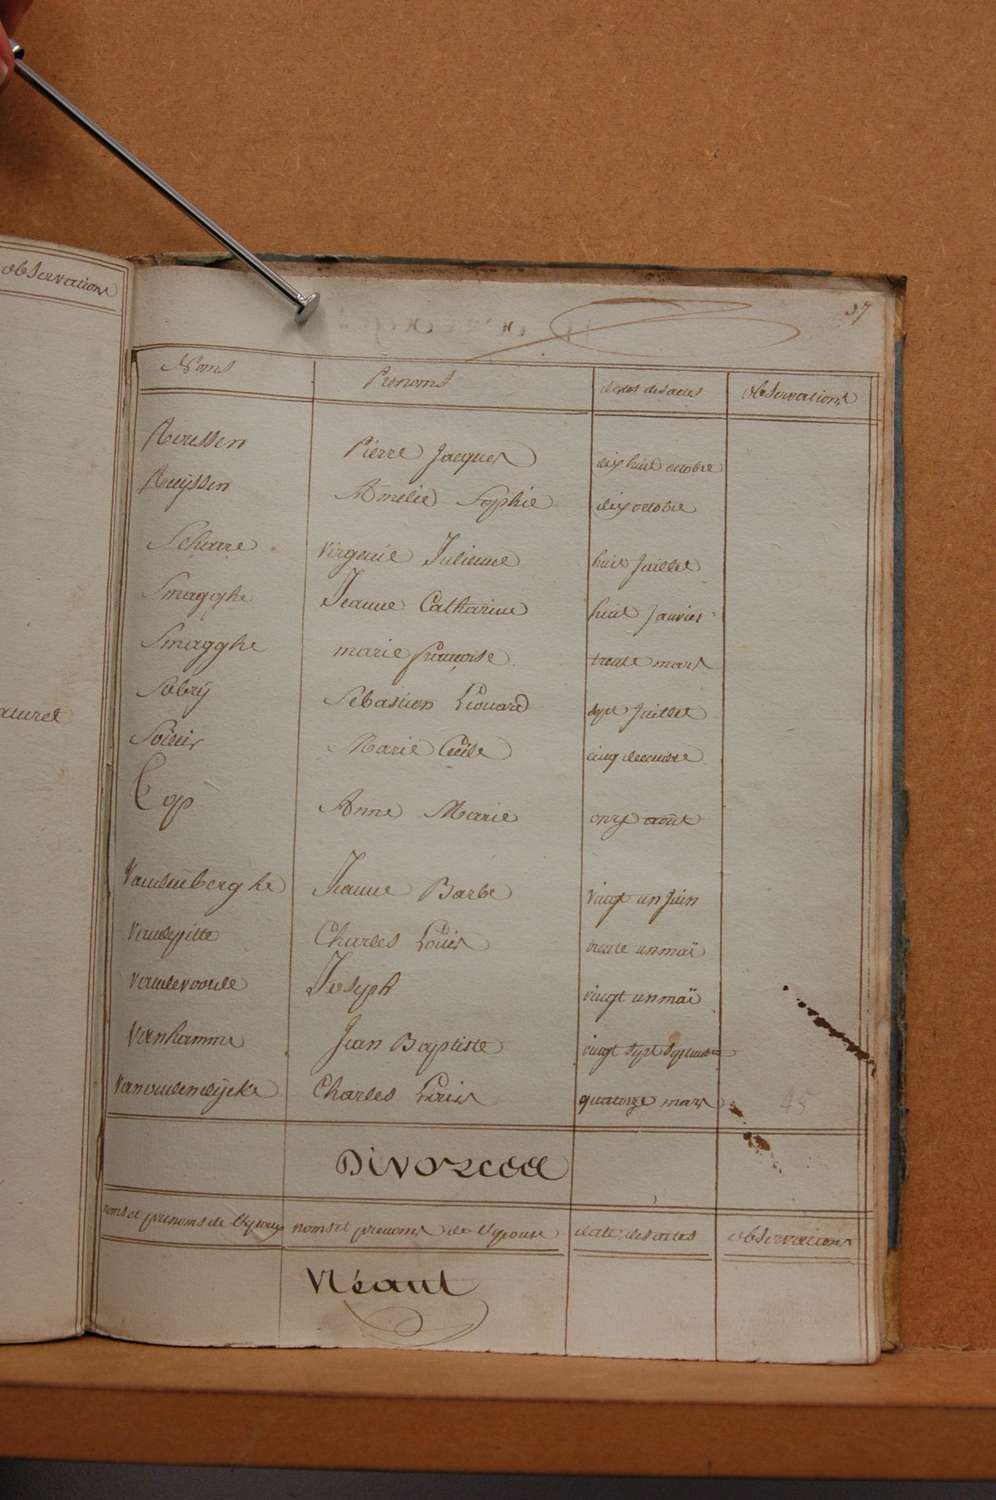 observations
aturel
37
Noms Prenoms dates des actes observations
Roussen Pierre Jacques dix huit octobre
Ruÿssen Amelie Sophie dix octobre
Scharre Virginie Julienne huit Juillet
Smagghe Jeanne Catharine huit Janvier
Smagghe marie francoise trente mars
Sobrÿ Sebastien Léonard sept Juillet
Soenis Marie Cecile cinq decembre
Top Anne Marie onze août
Vandenberghe Jeanne Barbe vingt un Juin
Vandepitte Charles Louis trente un maï
Vandevoorde Joseph vingt un maï
Vanhamme Jean Baptiste vingt sept septembre
Vanoudendÿcke Charles Louis quatorze mars 45
Divorces
noms et prenoms de l'epoux noms et prenoms de l'epouse date des actes observations
Néant